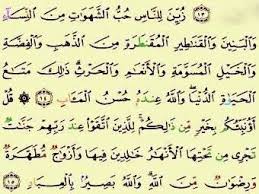 ١٣ زُيِّنَ لِلنَّاسِ حُبُّ ٱلشَّهَوَٰتِ مِنَ ٱلنِّسَآءِ
وَٱلْبَنِينَ وَٱلْقَنَٰطِيرِ ٱلْمُقَنطَرَةِ مِنَ ٱلذَّهَبِ وَٱلْفِضَّةِ
وَٱلْخَيْلِ ٱلْمُسَوَّمَةِ وَٱلْأَنْعَٰمِ وَٱلْحَرْثِ ذَٰلِكَ مَتَٰعُ
ٱلْحَيَوٰةِ ٱلدُّنْيَا وَٱللَّهُ عِندَهُۥ حُسْنُ ٱلْمَـَٔابِ ١٤ قُلْ
أَؤُنَبِّئُكُم بِخَيْرٍ مِّن ذَٰلِكُمْ لِلَّذِينَ ٱتَّقَوْا۟ عِندَ رَبِّهِمْ جَنَّٰتٌ
تَجْرِى مِن تَحْتِهَا ٱلْأَنْهَٰرُ خَٰلِدِينَ فِيهَا وَأَزْوَٰجٌ مُّطَهَّرَةٌ
وَرِضْوَٰنٌ مِّنَ ٱللَّهِ وَٱللَّهُ بَصِيرٌۢ بِٱلْعِبَادِ ١٥